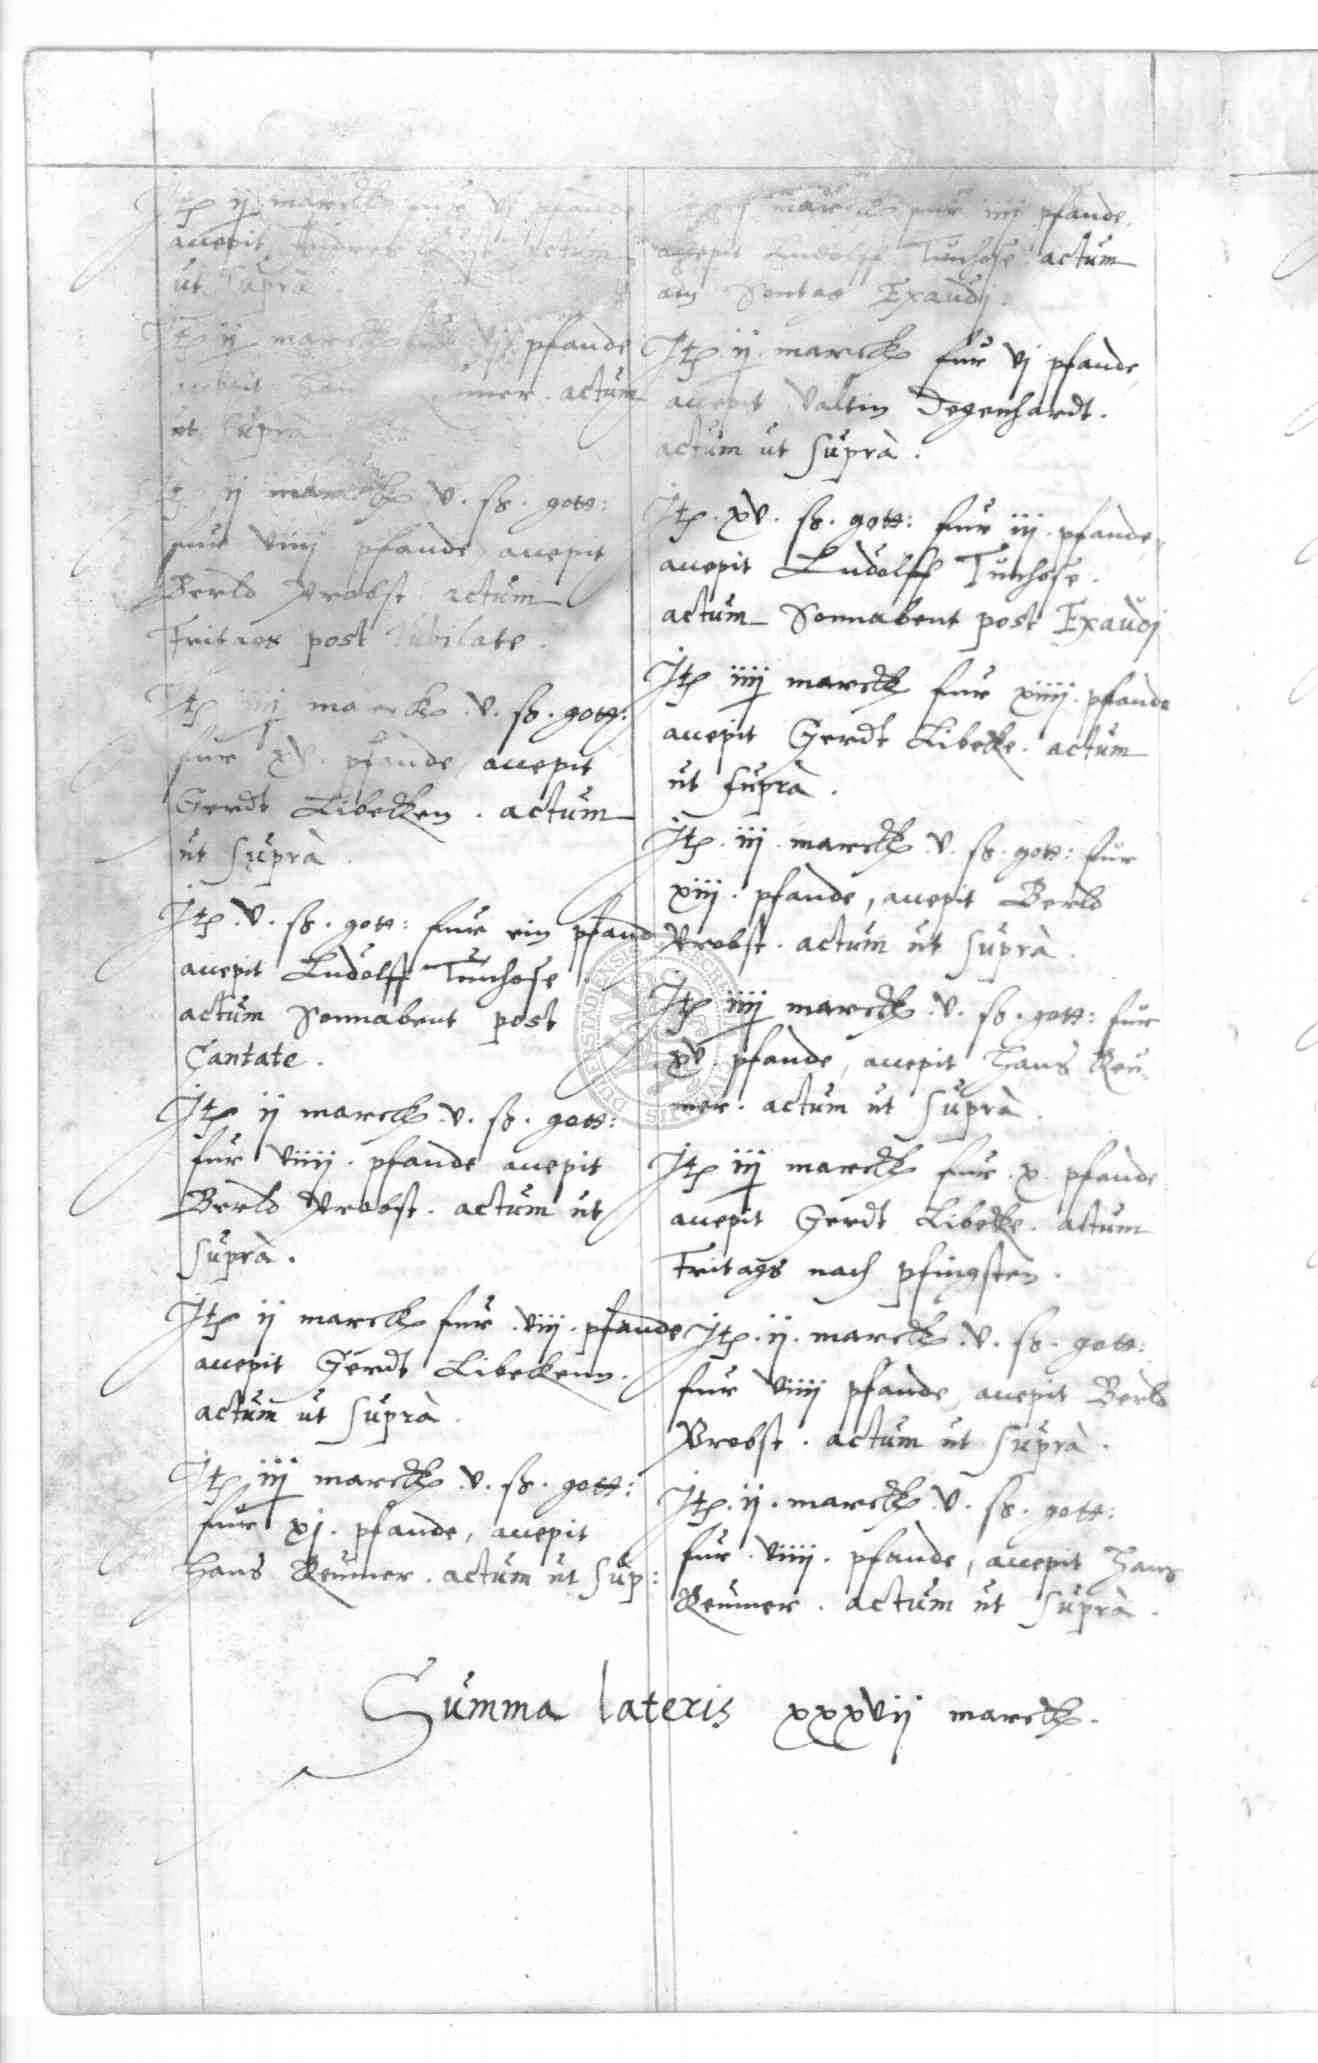 Jtem ij marck fur vj pfande
accepit Actum
ut Supra
Jtem ij marck fur vj pfande
accepit Han ümer . actum
ut Supra
Jtem ij marck v. ß. gott:
fur viiij pfande accepit
Berld Probst actum
Fritags post Jubilate .
Jtem iiij marck .v. ß. gott:
fur xv. pfande accepit
Gerdt Libecken . actum
ut Supra .
Jtem .v. ß. gott: fur ein pfand
accepit Ludolff Tunhose .
actum Sonnabent post
Cantate .
Jtem ij marck .v. ß. gott:
fur viiij . pfande accepit
Berld Probst . actum ut
Supra .
Jtem ij marck fur .viij. pfande
accepit Gerdt Libeckenn .
actum ut Supra .
Jtem iij marck .v. ß. gott:
fur xj . pfande, accepit
Hans Reumer . actum ut Sup:
marck fur iiij pfande,
accepit Ludolff Tunhose actum
am Sontag Exaudi .
Jtem ij marck fur vj pfande,
accepit Valtin Degenhardt .
actum ut Supra .
Jtem . xv . ß. gott: fur iij . pfande,
accepit Ludolff Tunhose .
actum Sonnabent post Exaudi
Jtem iiij marck fur xiiij . pfande
accepit Gerdt Libecke . actum
ut supra .
Jtem . iij . marck .v. ß. gott: fur
xiij . pfande, accepit Berld
Probst . actum ut Supra .
Jtem iiij marck .v. ß. gott: fur
xv . pfande, accepit Hans Reu-
mer . actum ut Supra .
Jtem iij marck fur . x . pfande
accepit Gerdt Libecke . actum
Fritags nach pfingsten .
Jtem . ij . marck .v. ß. gott:
fur viiij pfande, accepit Berld
Probst . actum ut Supra .
Jtem . ij . marck .v. ß. gott:
fur . viiij . pfande, accepit Hans
Reumer . actum ut Supra .
Summa lateris xxxvij marck .